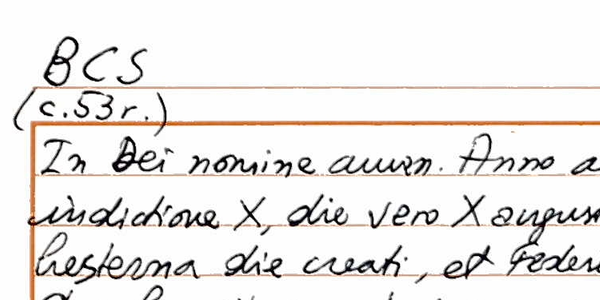 BCS
(c.53r.)
In Dei nomine amen. Anno a
indictione X, die vero X august
hesterna die creati, et Federi